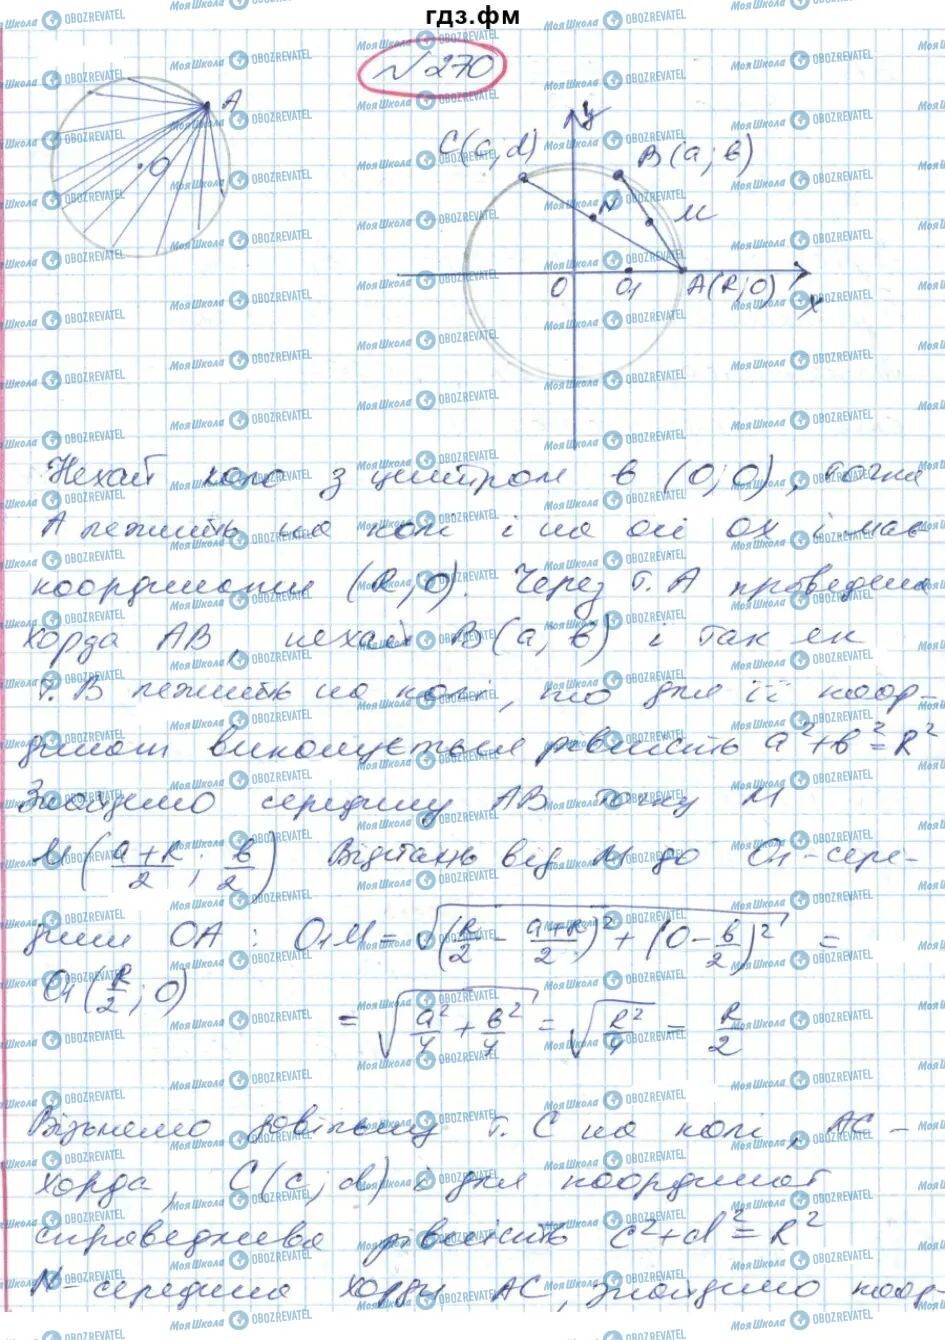 гдз.фм
№270
A
O
y
C(c,d)
B(a;в)
N
M
O
O₁
A(R;0)
x
Нехай коло з центром в (0;0), точка
А лежить на колі і на осі ОХ і має
координати (R;0). Через т. А проведена
хорда АВ, нехай В(а;в) і так як
т. В лежить на колі, то для її коор-
динат виконується рівність a²+в²=R²
Знайдемо середину АВ точку М
M(a+R/2; в/2) Відстань від М до О₁-сере-
дини ОА: O₁M = √((R/2 - a+R/2)² + (0-в/2)²) =
O₁(R/2; 0)
= √(a²/4 + в²/4) = √(R²/4) = R/2
Візьмемо довільну т. С на колі, АС-
хорда, С(c;d) і для координат
справедлива рівність c²+d²=R²
N-середина хорди АС, знайдемо коор-
МояШкола OBOZREVATEL